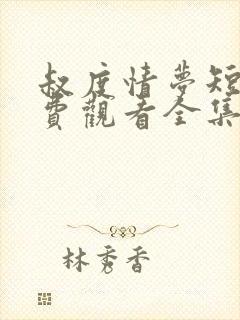 叔度情夢短
費觀看全集
林秀香